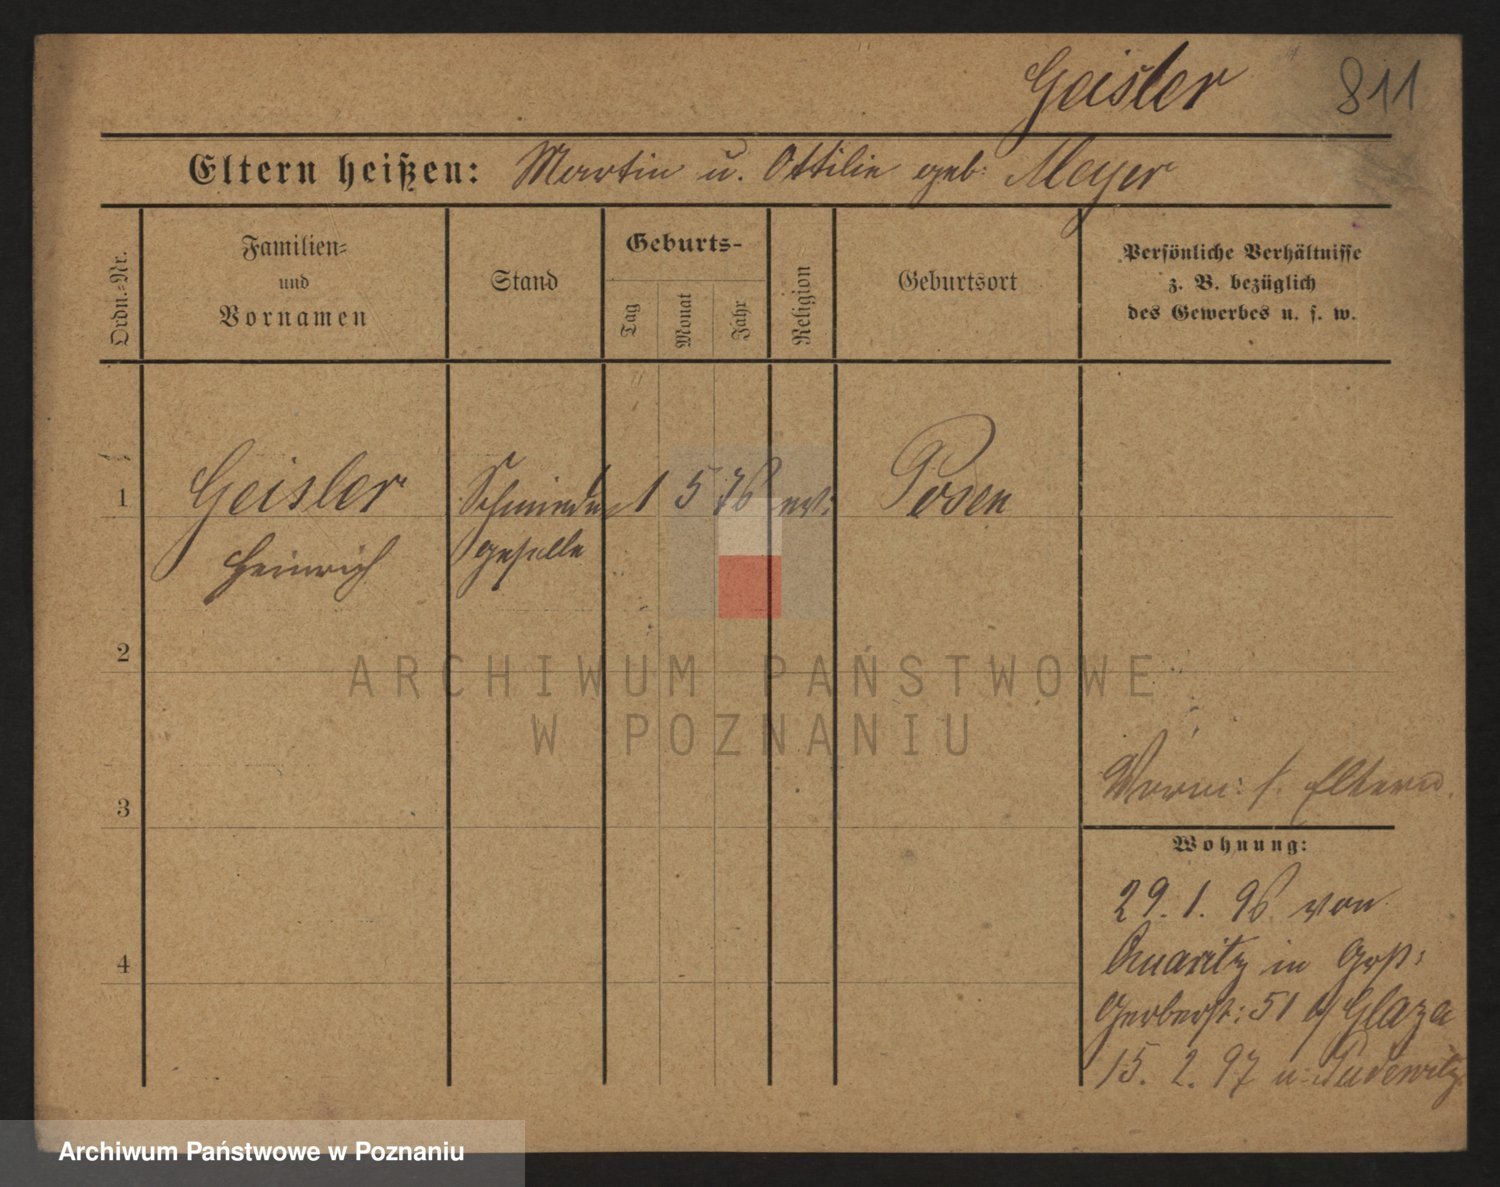 Geisler 811
Eltern heißen: Martin u. Ottilie geb: Meyer
Ordn.=Nr.
Familien=
und
Vornamen
Stand
Geburts-
Tag
Monat
Jahr
Religion
Geburtsort
Persönliche Verhältnisse
z. B. bezüglich
des Gewerbes u. s. w.
1 Geisler Schmiede 1 5 76 Posen
Heinrich geselle
2
3
4
Vorm: s. Eltern.
Wohnung:
29. 1. 96 von
in Groß:
Gerberst: 51 b/ Glaza
15. 2. 97 n. Pudewitz
ARCHIWUM PAŃSTWOWE
W POZNANIU
Archiwum Państwowe w Poznaniu